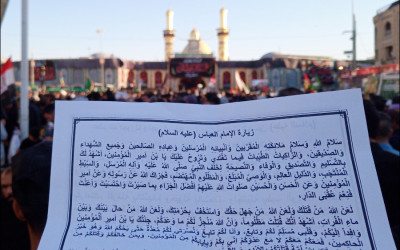 زيارة الإمام العباس (عليه السلام)
سلامُ اللهِ وسلامُ ملائكتِهِ المُقرَّبينَ وأنبيائِهِ المُرسلينَ وعبادِهِ الصالحينَ وجميعِ الشهداءِ
والصِّدِّيقينَ، والزاكياتُ الطيباتُ فيما تغتدي وتروحُ عليكَ يا بنَ أميرِ المؤمنينَ، أشهدُ لكَ
بالتسليمِ والتصديقِ والوفاءِ والنصيحةِ لخلفِ النبيِّ صلى اللهُ عليهِ وآلهِ المُرسلِ، والسبطِ
المُنتجبِ، والدليلِ العالمِ، والوصيِّ المُبلِّغِ، والمظلومِ المُهتضَمِ، فجزاكَ اللهُ عن رسولِهِ وعن أميرِ
المؤمنينَ وعن الحسنِ والحسينِ صلواتُ اللهِ عليهم أفضلَ الجزاءِ بما صبرتَ واحتسبتَ وأعنتَ
فنعمَ عقبى الدارِ.
لعنَ اللهُ مَنْ قتلكَ ولعنَ اللهُ مَنْ جهلَ حقكَ واستخفَّ بحرمتِكَ، ولعنَ اللهُ مَنْ حالَ بينكَ وبينَ
ماءِ الفراتِ، أشهدُ أنكَ قُتلتَ مظلوماً، وأنَّ اللهَ مُنجزٌ لكم ما وعدكم، جئتُكَ يا بنَ أميرِ المؤمنينَ
وافداً إليكم، وقلبي مُسلِّمٌ لكم وتابعٌ، وأنا لكم تابعٌ ونصرتي لكم مُعدَّةٌ حتى يحكمَ اللهُ وهوَ خيرُ
الحاكمينَ، فمعكم معكم لا معَ عدوِّكم إني بكم وبإيابِكم